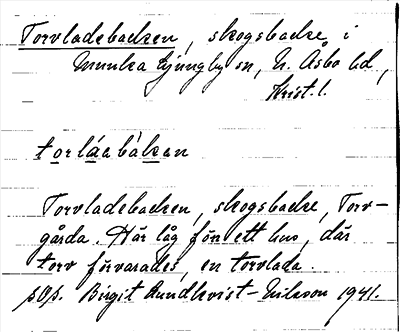 Torvladebacken, skogsbacke i
Munka Ljungby sn, N. Åsbo hd,
Krist. l.
torláebàkan
Torvladebacken, skogsbacke, Torv-
gårda. Här låg förr ett hus, där
torv förvarades, en torvlada.
Birgit Rundkvist-Nilsson 1941.